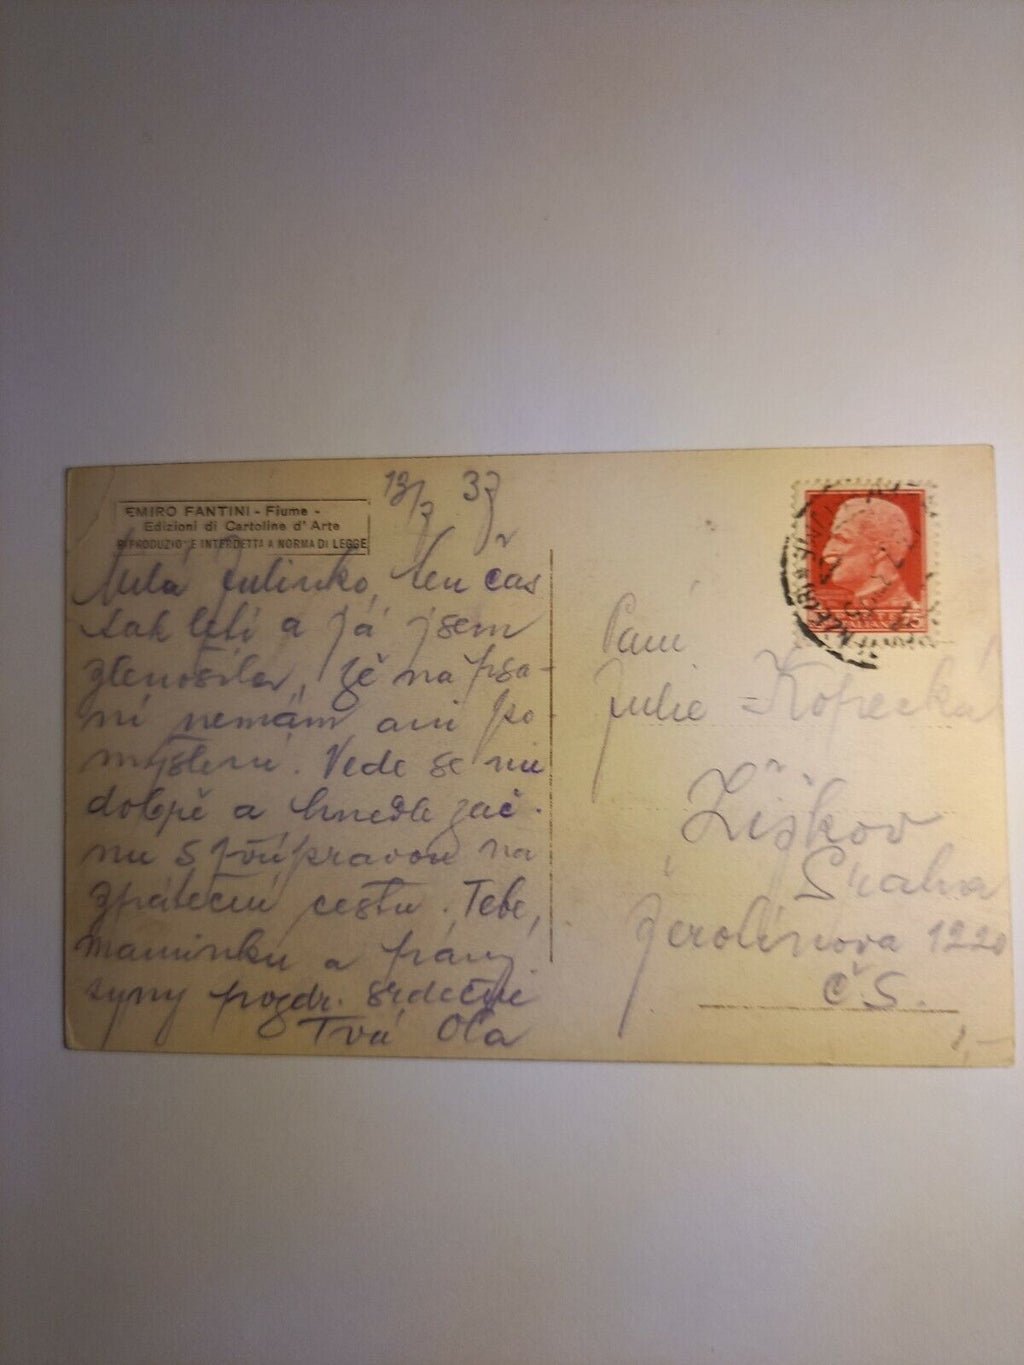 EMIRO FANTINI - Fiume -
Edizioni di Cartoline d'Arte
RIPRODUZIONE INTERDETTA A NORMA DI LEGGE
13/7 37
Milá Julinko, ten čas
tak letí a já jsem
zlenošila, že na psa-
ní nemám ani po-
myšlení. Vede se mi
dobře a hnedle zač-
nu s přípravou na
zpáteční cestu. Tebe,
maminku a pány
syny pozdr. srdečně
Tvá Ola
Paní
Julie Kopecká
Žižkov
Praha
Jerolínova 1220
ČS.
1,-